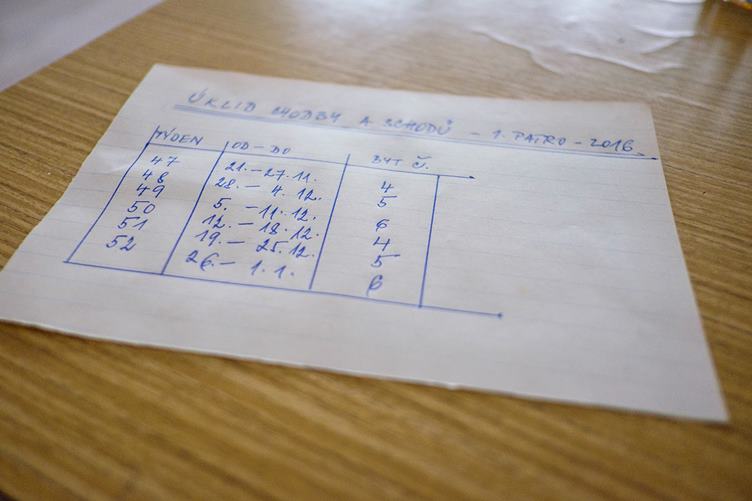 ÚKLID CHODBY A SCHODŮ - 1. PATRO - 2016
TÝDEN OD - DO BYT Č.
47 21. - 27. 11. 4
48 28. - 4. 12. 5
49 5. - 11. 12. 6
50 12. - 18. 12. 4
51 19. - 25. 12. 5
52 26. - 1. 1. 6